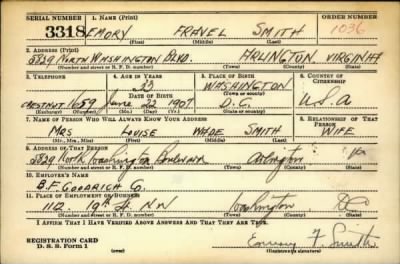 SERIAL NUMBER 1. NAME (Print) ORDER NUMBER
3318 EMORY FRAVEL SMITH 1036
(First) (Middle) (Last)
2. ADDRESS (Print)
5829 NORTH WASHINGTON BLVD. ARLINGTON VIRGINIA
(Number and street or R. F. D. number) (Town) (County) (State)
3. TELEPHONE 4. AGE IN YEARS 5. PLACE OF BIRTH 6. COUNTRY OF CITIZENSHIP
33 WASHINGTON
DATE OF BIRTH (Town or county)
CHESTNUT 1059 June 22 1907 D.C. U.S.A
(Exchange) (Number) (Mo.) (Day) (Yr.) (State or country)
7. NAME OF PERSON WHO WILL ALWAYS KNOW YOUR ADDRESS 8. RELATIONSHIP OF THAT PERSON
MRS LOUISE WADE SMITH WIFE
(Mr., Mrs., Miss) (First) (Middle) (Last)
9. ADDRESS OF THAT PERSON
5829 North Washington Boulevard Arlington Va
(Number and street or R. F. D. number) (Town) (County) (State)
10. EMPLOYER'S NAME
B.F. GOODRICH Co.
11. PLACE OF EMPLOYMENT OR BUSINESS
1112 19th St. NW Washington DC
(Number and street or R. F. D. number) (Town) (County) (State)
I AFFIRM THAT I HAVE VERIFIED ABOVE ANSWERS AND THAT THEY ARE TRUE.
REGISTRATION CARD
D. S. S. Form 1 (over) Emory F. Smith
(Registrant's signature)